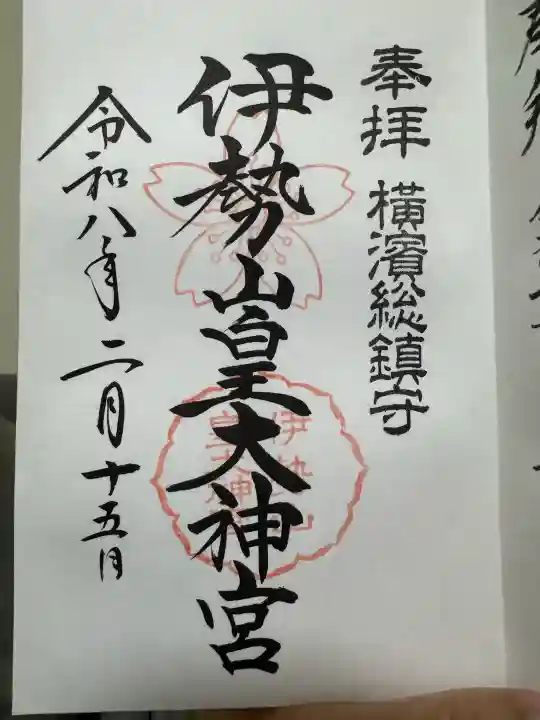 奉拝 横濱総鎮守
伊勢山皇大神宮
令和八年二月十五日
伊勢山
皇大神宮